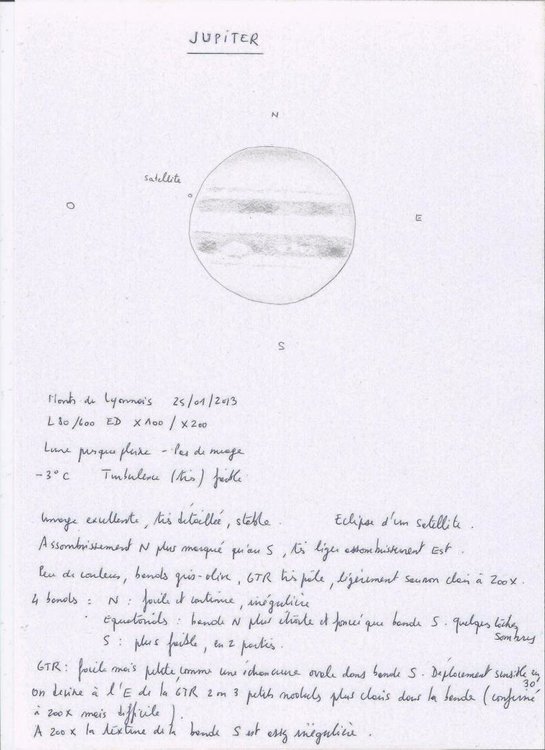 JUPITER
N
satellite
O
E
S
Monts du Lyonnais 25/01/2013
L80/600 ED X100 / X200
Lune presque pleine - Pas de nuage
-3°C Turbulence (très) faible
Image excellente, très détaillée, stable. Eclipse d'un satellite.
Assombrissement N plus marqué qu'au S, très léger assombrissement Est.
Peu de couleurs, bandes gris-olive, GTR très pâle, légèrement saumon clair à 200x.
4 bandes : N : facile et continue, irrégulière
Equatoriales : bande N plus étroite et foncée que bande S. quelques tâches
sombres
S : plus faible, en 2 parties.
GTR : facile mais petite, comme une échancrure ovale dans bande S. Déplacement sensible en
30'
On devine à l'E de la GTR 2 ou 3 petits nodules plus clairs dans la bande (confirmé
à 200x mais difficile).
A 200x la texture de la bande S est assez irrégulière.